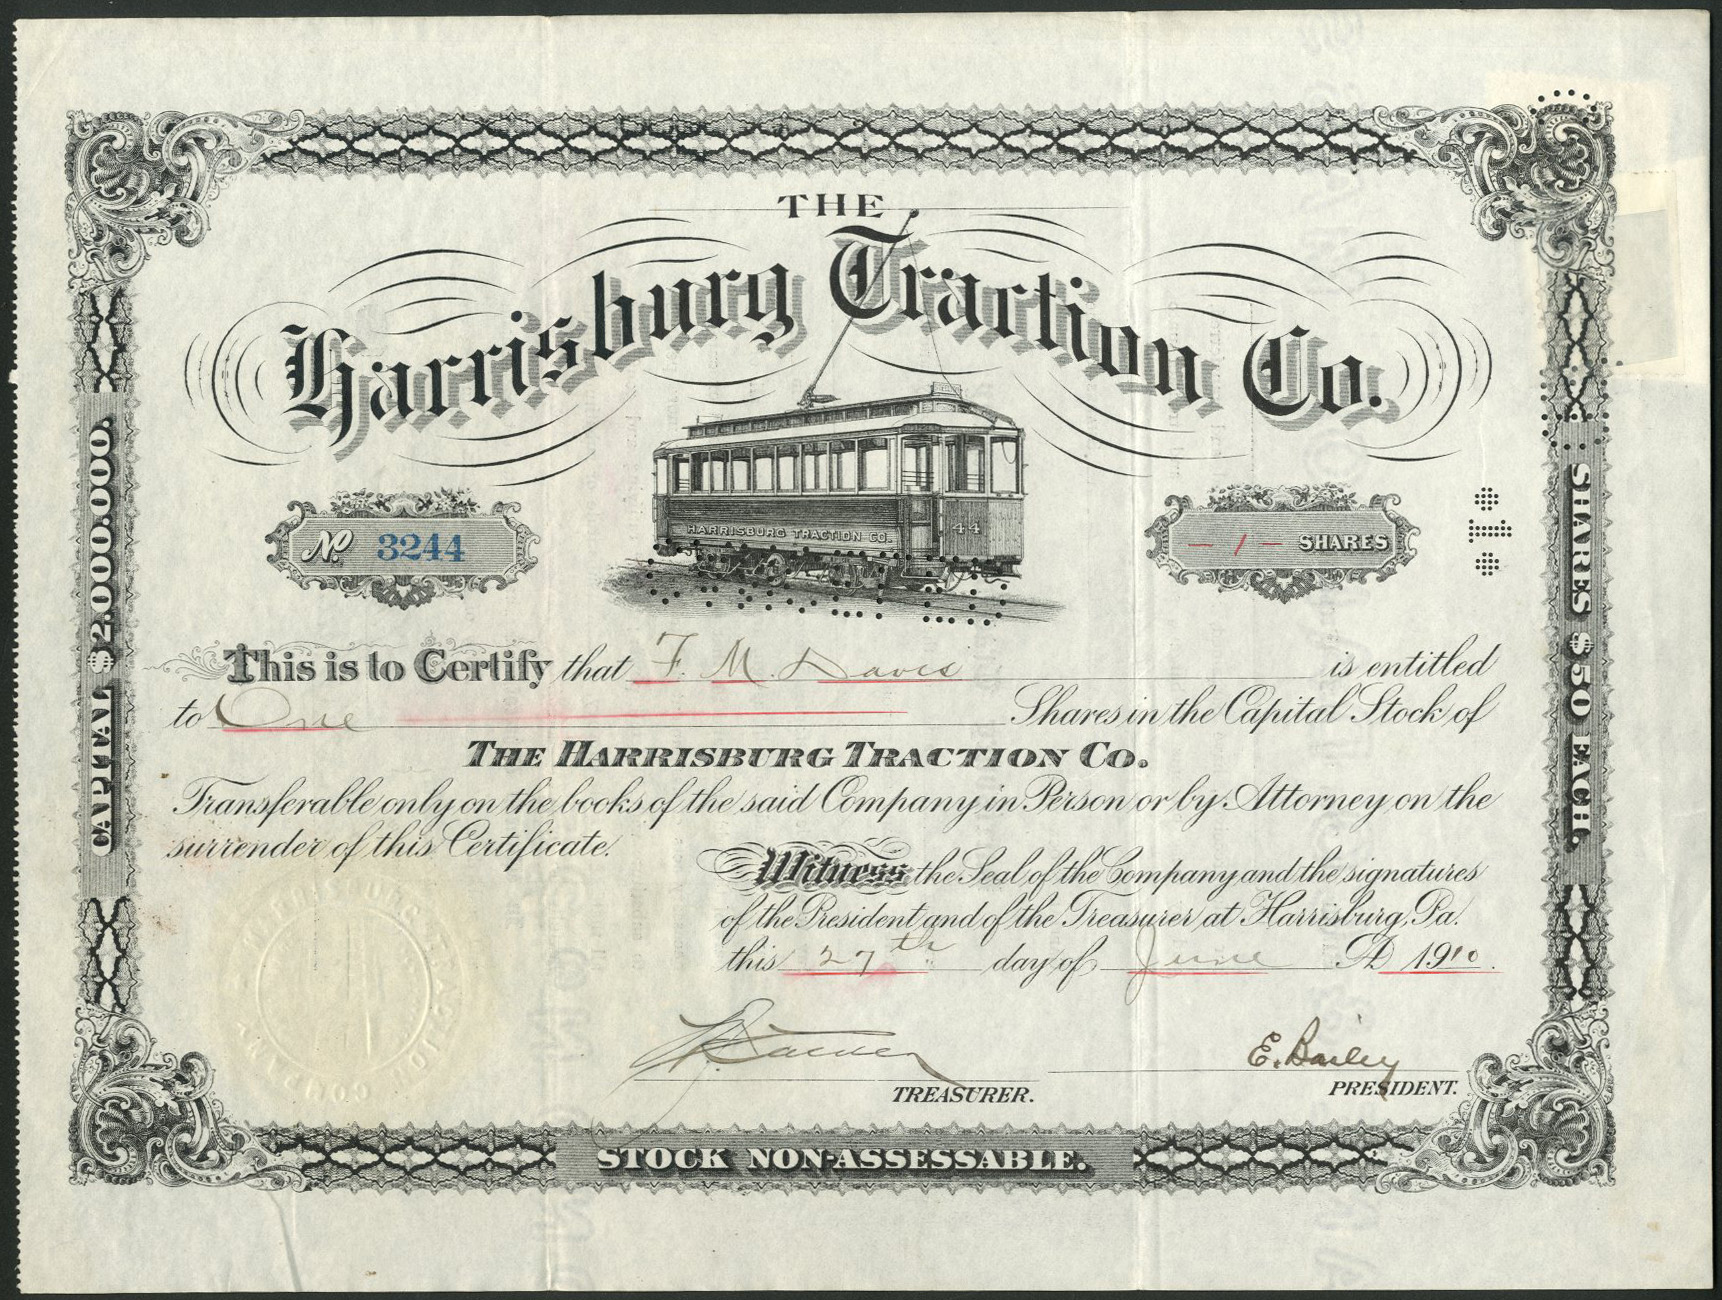 THE
Harrisburg Traction Co.
HARRISBURG TRACTION CO.
44
No. 3244
- 1 - SHARES
1
CAPITAL $2.000.000.
SHARES $50 EACH.
This is to Certify that F. M. Davis is entitled
to One Shares in the Capital Stock of
THE HARRISBURG TRACTION CO.
Transferable only on the books of the said Company in Person or by Attorney on the
surrender of this Certificate.
Witness the Seal of the Company and the signatures
of the President and of the Treasurer at Harrisburg, Pa.
this 27th day of June AD 1910.
E. Bailey
TREASURER.
PRESIDENT.
HARRISBURG TRACTION COMPANY
STOCK NON-ASSESSABLE.